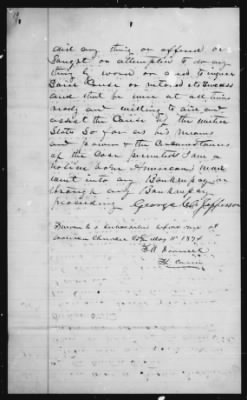 did any thing or offered or
Sought or attempted to do any
thing by word or deed to injure
Said Cause or retard its success
and that he were at all times
ready and willing to aid and
assist the Cause of the united
States So far as his means
and power & the Circumstances
of the Case permitted I am a
Native born American never
went into any Bankruptcy or
through any Bankruptcy
proceeding George C Jefferson
Sworn to & subscribed before me at
May 11 1874